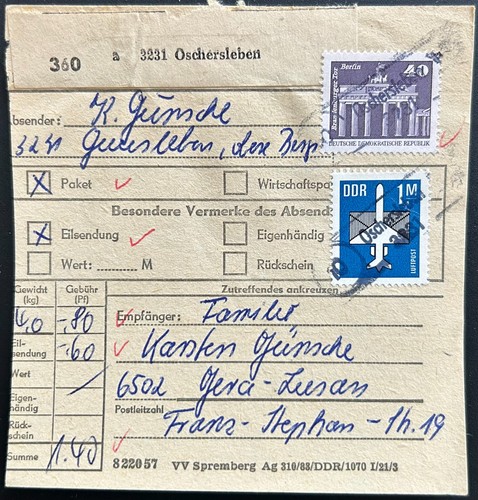 360 a 3231 Oschersleben
Berlin 40
Brandenburger Tor
DEUTSCHE DEMOKRATISCHE REPUBLIK
Absender: K. Günsche
3231
X Paket Wirtschaftspa
DDR 1M
LUFTPOST
Oschersleben
3231
Besondere Vermerke des Absend
X Eilsendung Eigenhändig
Wert: ......... M Rückschein
Gewicht (kg) Gebühr (Pf) Zutreffendes ankreuzen
4,0 -.80 Empfänger: Familie
Eil-sendung -.60 Karsten Günsche
Wert 6502 Gera-Lusan
Eigen-händig Postleitzahl
Franz-Stephan-Str. 19
Rück-schein
Summe 1.40
822057 VV Spremberg Ag 310/83/DDR/1070 I/21/3